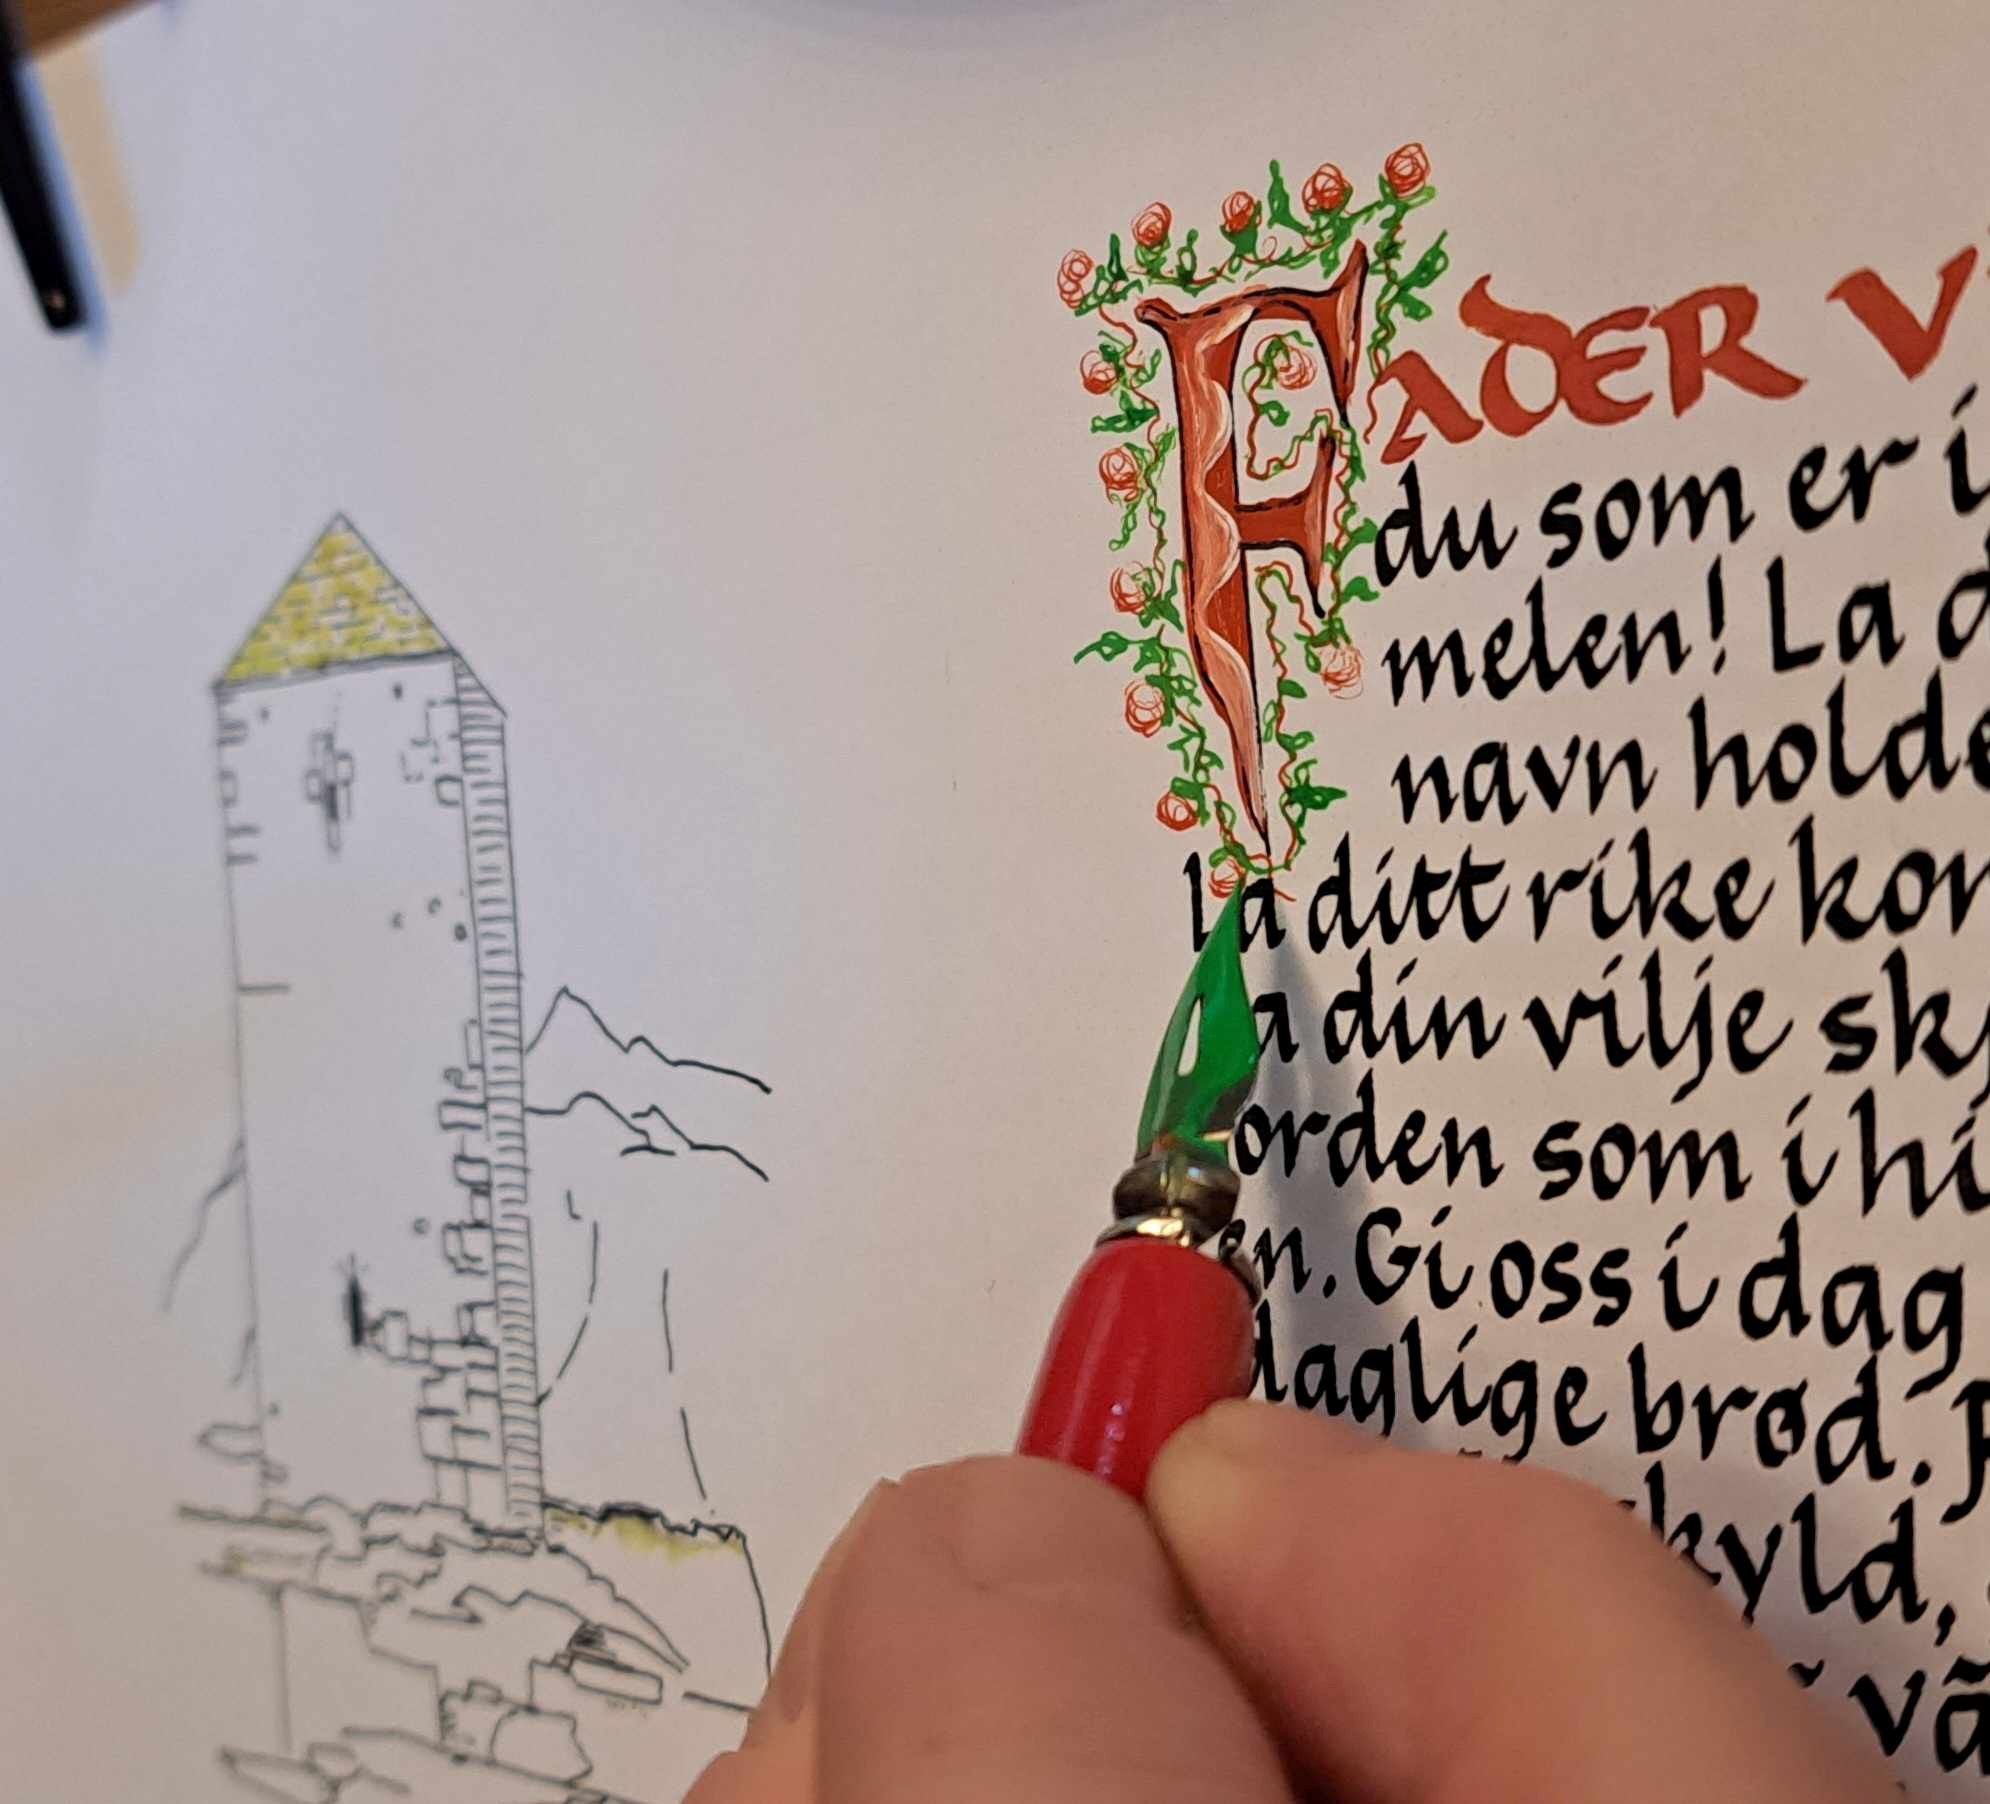 FADER V
du som er i
melen! La d
navn holde
la ditt rike kom
a din vilje sk
orden som i hi
en. Gi oss i dag
daglige brød. F
kyld,
vå